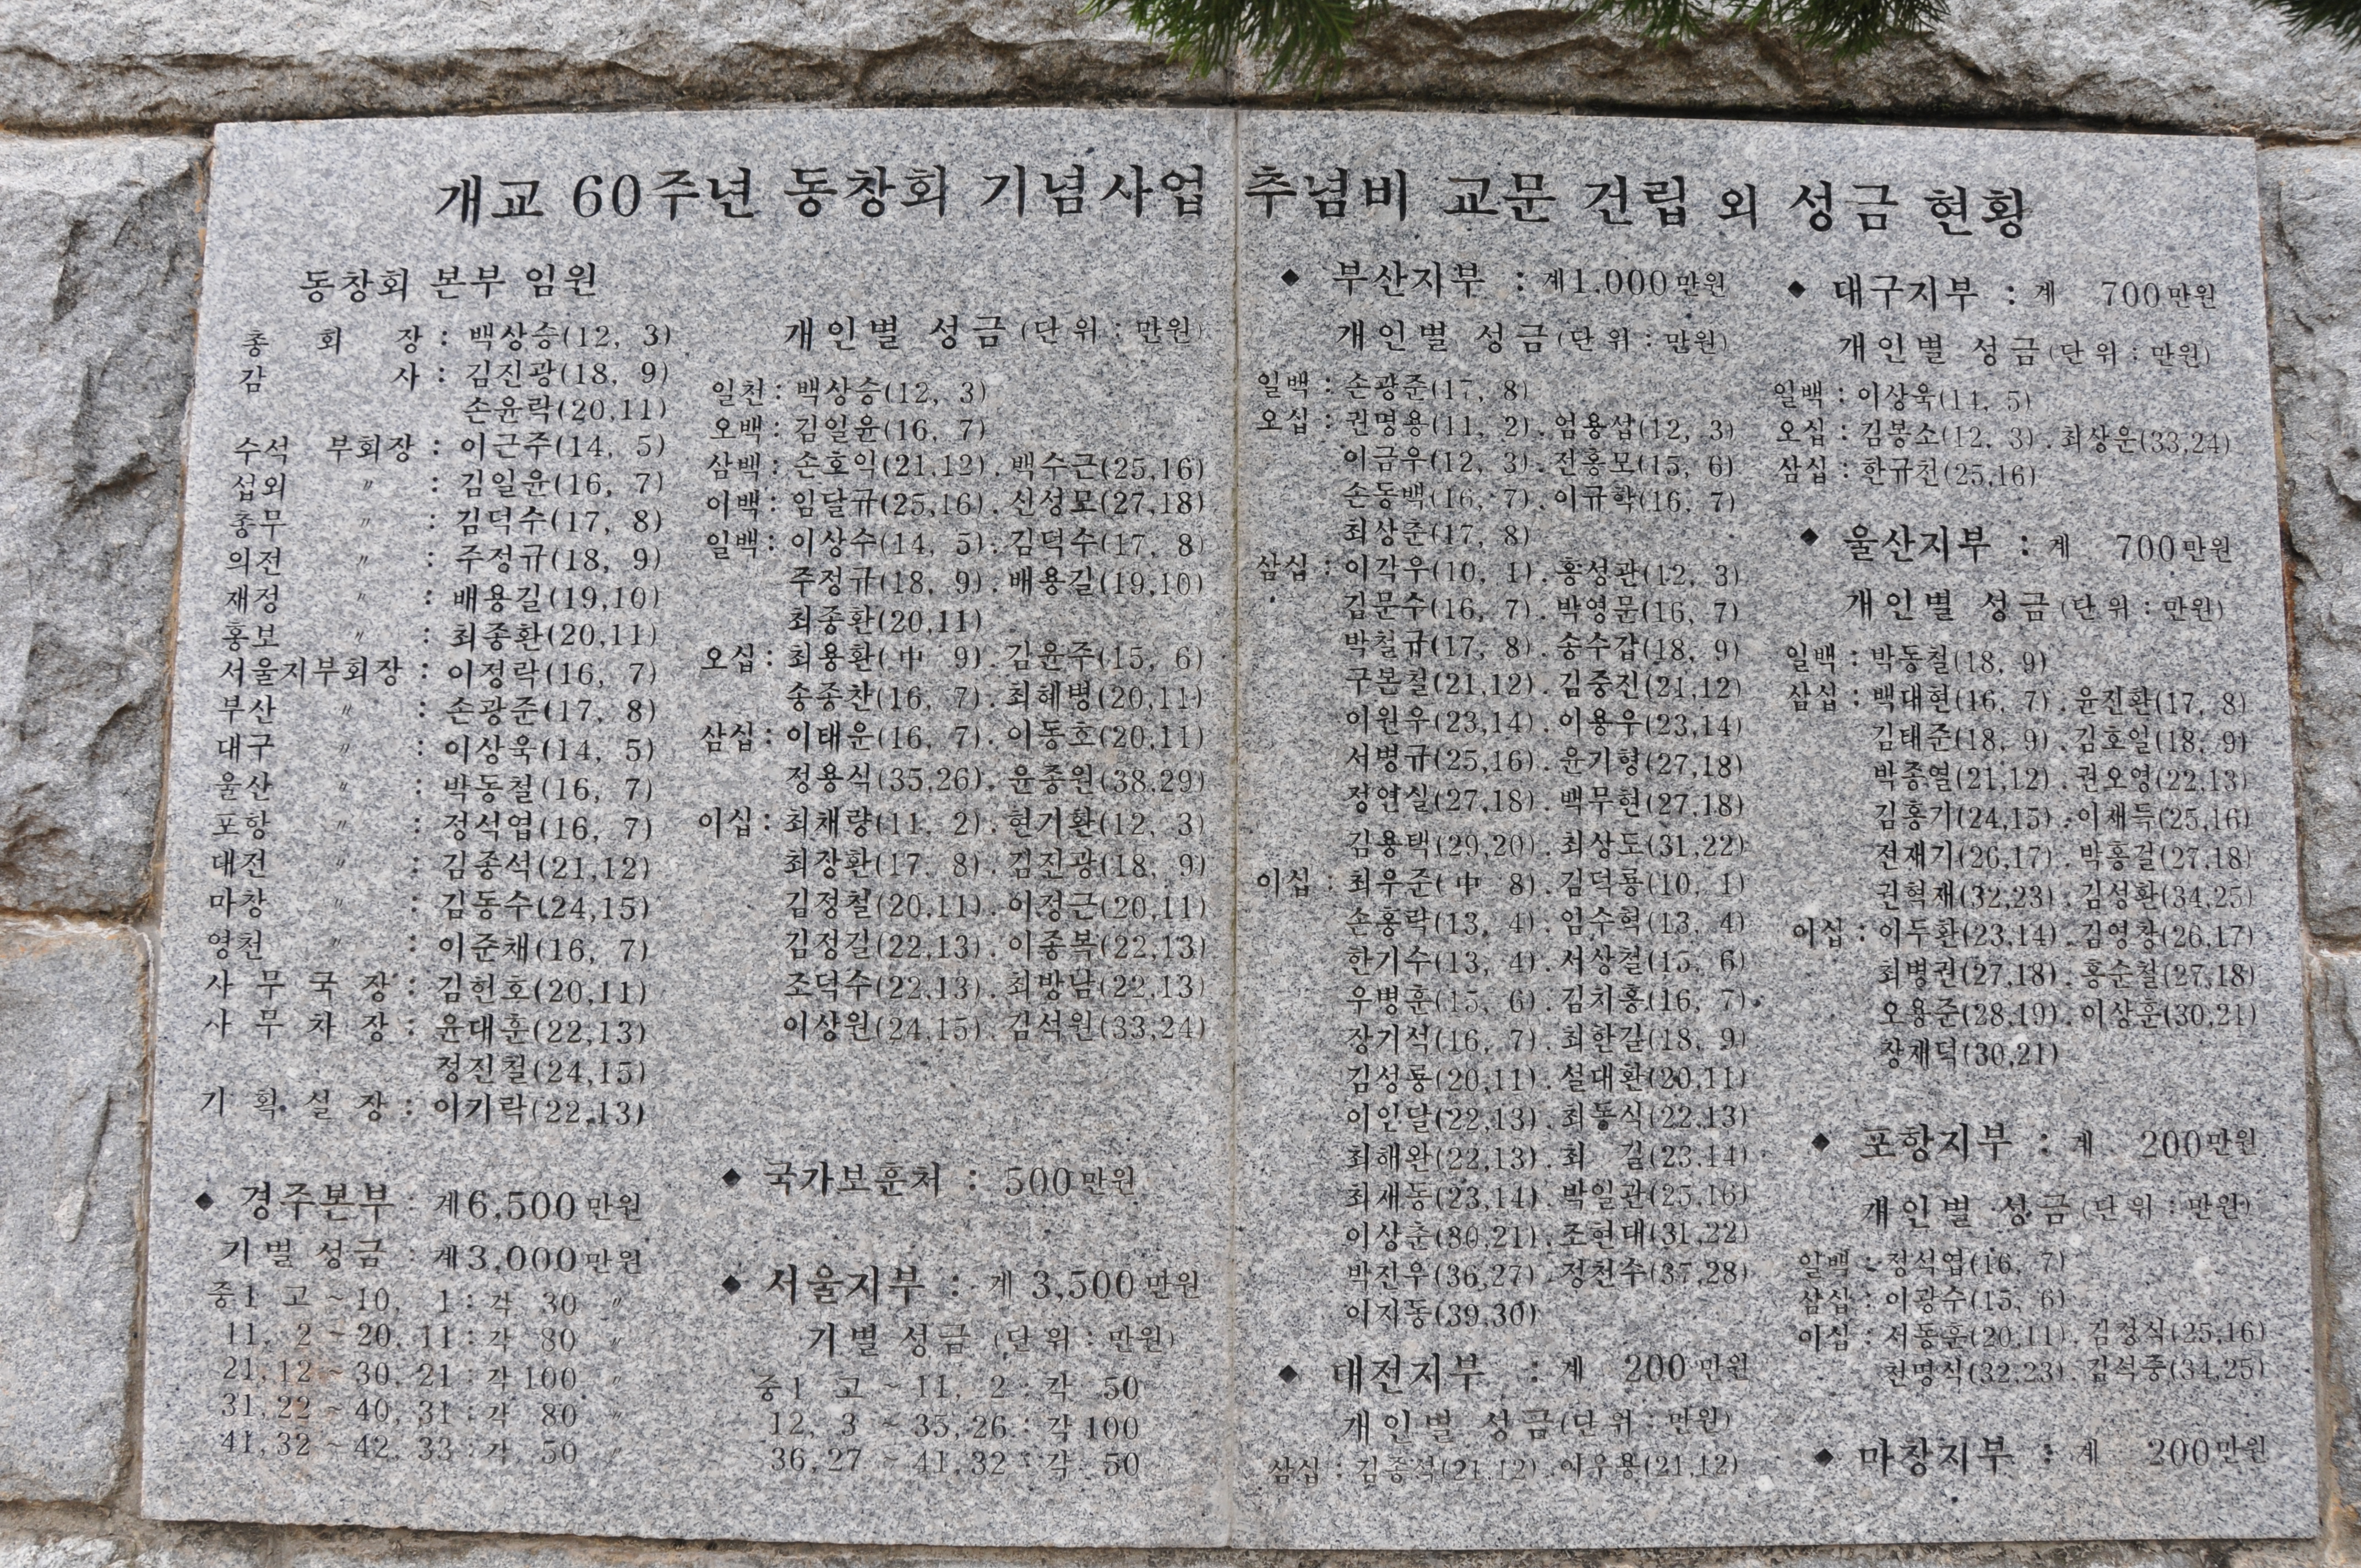 개교 60주년 동창회 기념사업 추념비 교문 건립 외 성금 현황
동창회 본부 임원
총 회 장 : 백상승(12, 3)
감 사 : 김진광(18, 9)
손윤락(20,11)
수석 부회장 : 이근주(14, 5)
섭외 〃 : 김일윤(16, 7)
총무 〃 : 김덕수(17, 8)
의전 〃 : 주정규(18, 9)
재정 〃 : 배용길(19,10)
홍보 〃 : 최종환(20,11)
서울지부회장 : 이정락(16, 7)
부산 〃 : 손광준(17, 8)
대구 〃 : 이상욱(14, 5)
울산 〃 : 박동철(16, 7)
포항 〃 : 정석업(16, 7)
대전 〃 : 김종석(21,12)
마창 〃 : 김동수(24,15)
영천 〃 : 이준채(16, 7)
사 무 국 장 : 김헌호(20,11)
사 무 차 장 : 윤대훈(22,13)
정진철(24,15)
기 획 실 장 : 이기락(22,13)
◆ 경주본부 : 계6,500만원
기별 성금 : 계3,000만원
중1 고 ~ 10, 1 : 각 30 〃
11, 2 ~ 20, 11 : 각 80 〃
21,12 ~ 30, 21 : 각 100 〃
31,22 ~ 40, 31 : 각 80 〃
41,32 ~ 42, 33 : 각 50 〃
개인별 성금(단위 : 만원)
일천 : 백상승(12, 3)
오백 : 김일윤(16, 7)
삼백 : 손호익(21,12). 백수근(25,16)
이백 : 임달규(25,16). 신성모(27,18)
일백 : 이상수(14, 5). 김덕수(17, 8)
주정규(18, 9). 배용길(19,10)
최종환(20,11)
오십 : 최용환(中 9). 김윤주(15, 6)
송종찬(16, 7). 최혜병(20,11)
삼십 : 이태운(16, 7). 이동호(20,11)
정용식(35,26). 윤종원(38,29)
이십 : 최채량(11, 2). 현기환(12, 3)
최장환(17, 8). 김진광(18, 9)
김정철(20,11). 이정근(20,11)
김정길(22,13). 이종복(22,13)
조덕수(22,13). 최방남(22,13)
이상원(24,15). 김석원(33,24)
◆ 국가보훈처 : 500만원
◆ 서울지부 : 계 3,500만원
기별 성금 (단위 : 만원)
중1 고 ~ 11, 2 : 각 50
12, 3 ~ 35,26 : 각 100
36,27 ~ 41,32 : 각 50
◆ 부산지부 : 계1,000만원
개인별 성금(단위 : 만원)
일백 : 손광준(17, 8)
오십 : 권명용(11, 2). 엄용삽(12, 3)
이금우(12, 3). 전홍모(15, 6)
손동백(16, 7). 이규학(16, 7)
최상춘(17, 8)
삼십 : 이각우(10, 1). 홍성관(12, 3)
김문수(16, 7). 박영문(16, 7)
박철규(17, 8). 송수갑(18, 9)
구본철(21,12). 김중진(21,12)
이원우(23,14). 이용우(23,14)
서병규(25,16). 윤기형(27,18)
정연실(27,18). 백무현(27,18)
김용택(29,20). 최상도(31,22)
이십 : 최우준(中 8). 김덕룡(10, 1)
손홍락(13, 4). 임수혁(13, 4)
한기수(13, 4). 서상철(15, 6)
우병훈(15, 6). 김치홍(16, 7)
장기석(16, 7). 최한길(18, 9)
김성룡(20,11). 설대환(20,11)
이인달(22,13). 최동식(22,13)
최해완(22,13). 최 김(23,14)
최재동(23,14). 박일관(25,16)
이상춘(30,21). 조현대(31,22)
박진우(36,27). 정천수(37,28)
이지동(39,30)
◆ 대전지부 : 계 200만원
개인별 성금(단위 : 만원)
삼십 : 김종석(21,12). 이우용(21,12)
◆ 대구지부 : 계 700만원
개인별 성금(단위 : 만원)
일백 : 이상욱(14, 5)
오십 : 김봉소(12, 3). 최상운(33,24)
삼십 : 한규천(25,16)
◆ 울산지부 : 계 700만원
개인별 성금(단위 : 만원)
일백 : 박동철(18, 9)
삼십 : 백대현(16, 7). 윤진환(17, 8)
김태준(18, 9). 김호일(18, 9)
박종열(21,12). 권오영(22,13)
김홍기(24,15). 이채득(25,16)
전재기(26,17). 박홍걸(27,18)
권혁재(32,23). 김성환(34,25)
이십 : 이두환(23,14). 김영창(26,17)
최병권(27,18). 홍순철(27,18)
오용준(28,19). 이상훈(30,21)
장재덕(30,21)
◆ 포항지부 : 계 200만원
개인별 성금(단위 : 만원)
일백 : 정석업(16, 7)
삼십 : 이광수(15, 6)
이십 : 서동훈(20,11). 김정식(25,16)
천명식(32,23). 김석중(34,25)
◆ 마창지부 : 계 200만원